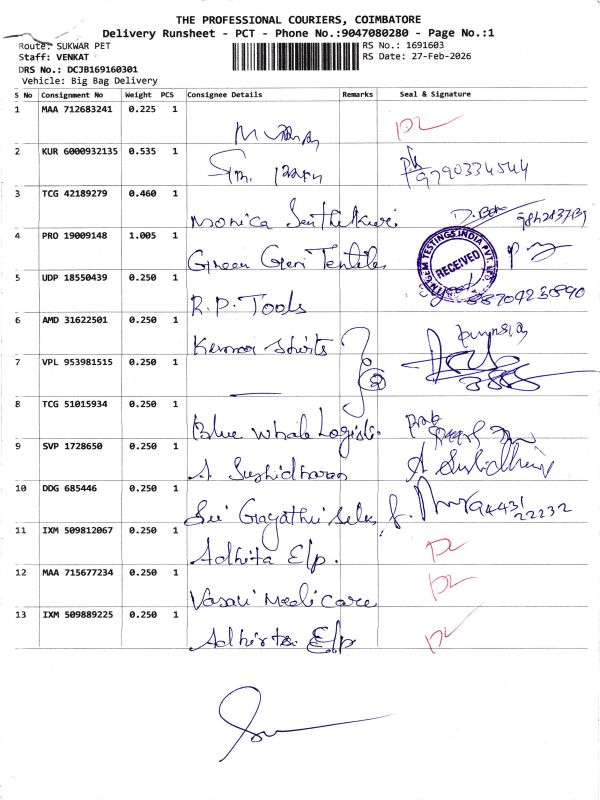 THE PROFESSIONAL COURIERS, COIMBATORE
Delivery Runsheet - PCT - Phone No.:9047080280 - Page No.:1
Route: SUKWAR PET
RS No.: 1691603
Staff: VENKAT
RS Date: 27-Feb-2026
DRS No.: DCJB169160301
Vehicle: Big Bag Delivery
S No Consignment No Weight PCS Consignee Details Remarks Seal & Signature
1 MAA 712683241 0.225 1
2 KUR 6000932135 0.535 1 Sm. ph 9790334544
3 TCG 42189279 0.460 1 Monica
4 PRO 19009148 1.005 1 Green Gem RECEIVED
5 UDP 18550439 0.250 1 R.P. Tools
6 AMD 31622501 0.250 1 Shirts
7 VPL 953981515 0.250 1
8 TCG 51015934 0.250 1 Blue Whale Logisti.
9 SVP 1728650 0.250 1 A Sushidharan
10 DDG 685446 0.250 1 Sri Gayathri 94431 22232
11 IXM 509812067 0.250 1 Adhita E/p.
12 MAA 715677234 0.250 1 Vasavi Medicare
13 IXM 509889225 0.250 1 E/p